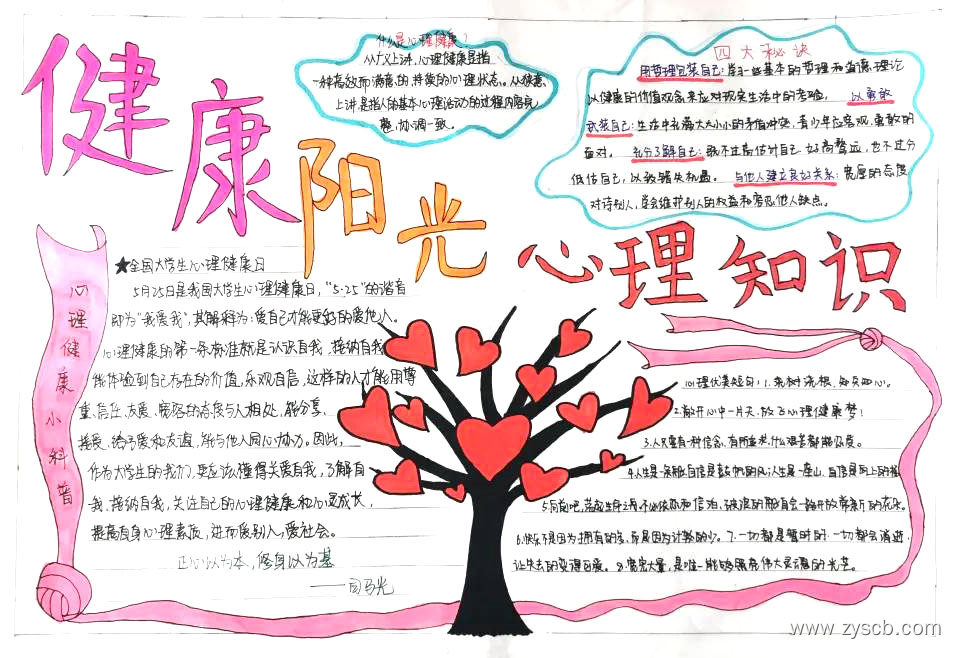 健康阳光
心理知识
什么是心理健康?
从广义上讲,心理健康是指
一种高效而满意的,持续的心理状态。从狭义
上讲是指人的基本心理活动的过程内容完
整,协调一致。
四大秘诀
用哲理包装自己:用一些基本的哲理和道德理论
以健康的价值观念来应对现实生活中的考验。 以勇敢
武装自己:生活中充满大大小小的矛盾冲突,青少年应客观,勇敢的
面对。 充分了解自己:既不过高估计自己 好高骛远,也不过分
低估自己,以致错失机遇。 与他人建立良好关系:宽厚的态度
对待别人,学会维护别人的权益和容忍他人缺点。
心理健康小科普
★全国大学生心理健康日
5月25日是我国大学生心理健康日,“5·25”的谐音
即为“我爱我”,其解释为:爱自己才能更好的爱他人。
心理健康的第一条标准就是认识自我,接纳自我
能体验到自己存在的价值,乐观自信,这样的人才能用尊
重、信任、友爱、宽容的态度与人相处,能分享、
接受、给予爱和友谊,能与他人同心协力。因此,
作为大学生的我们,更应该懂得关爱自我,了解自
我、接纳自我,关注自己的心理健康和心灵成长,
提高自身心理素质,进而爱别人,爱社会。
正心以为本,修身以为基
——司马光
心理优美短句:1.栽树浇根,知人知心。
2.敞开心中一片天,放飞心理健康梦!
3.人只要有一种信念,有所追求,什么艰苦都能忍受。
4.人生是一条船,自信是鼓帆的风;人生是一座山,自信是向上的
5.向前吧,
6.快乐不是因为拥有的多,而是因为计较的少。7.一切都是暂时的,一切都会消逝
让失去的变得可爱。8.宽宏大量,是唯一能够照亮伟大灵魂的光芒。
www.zyscb.com